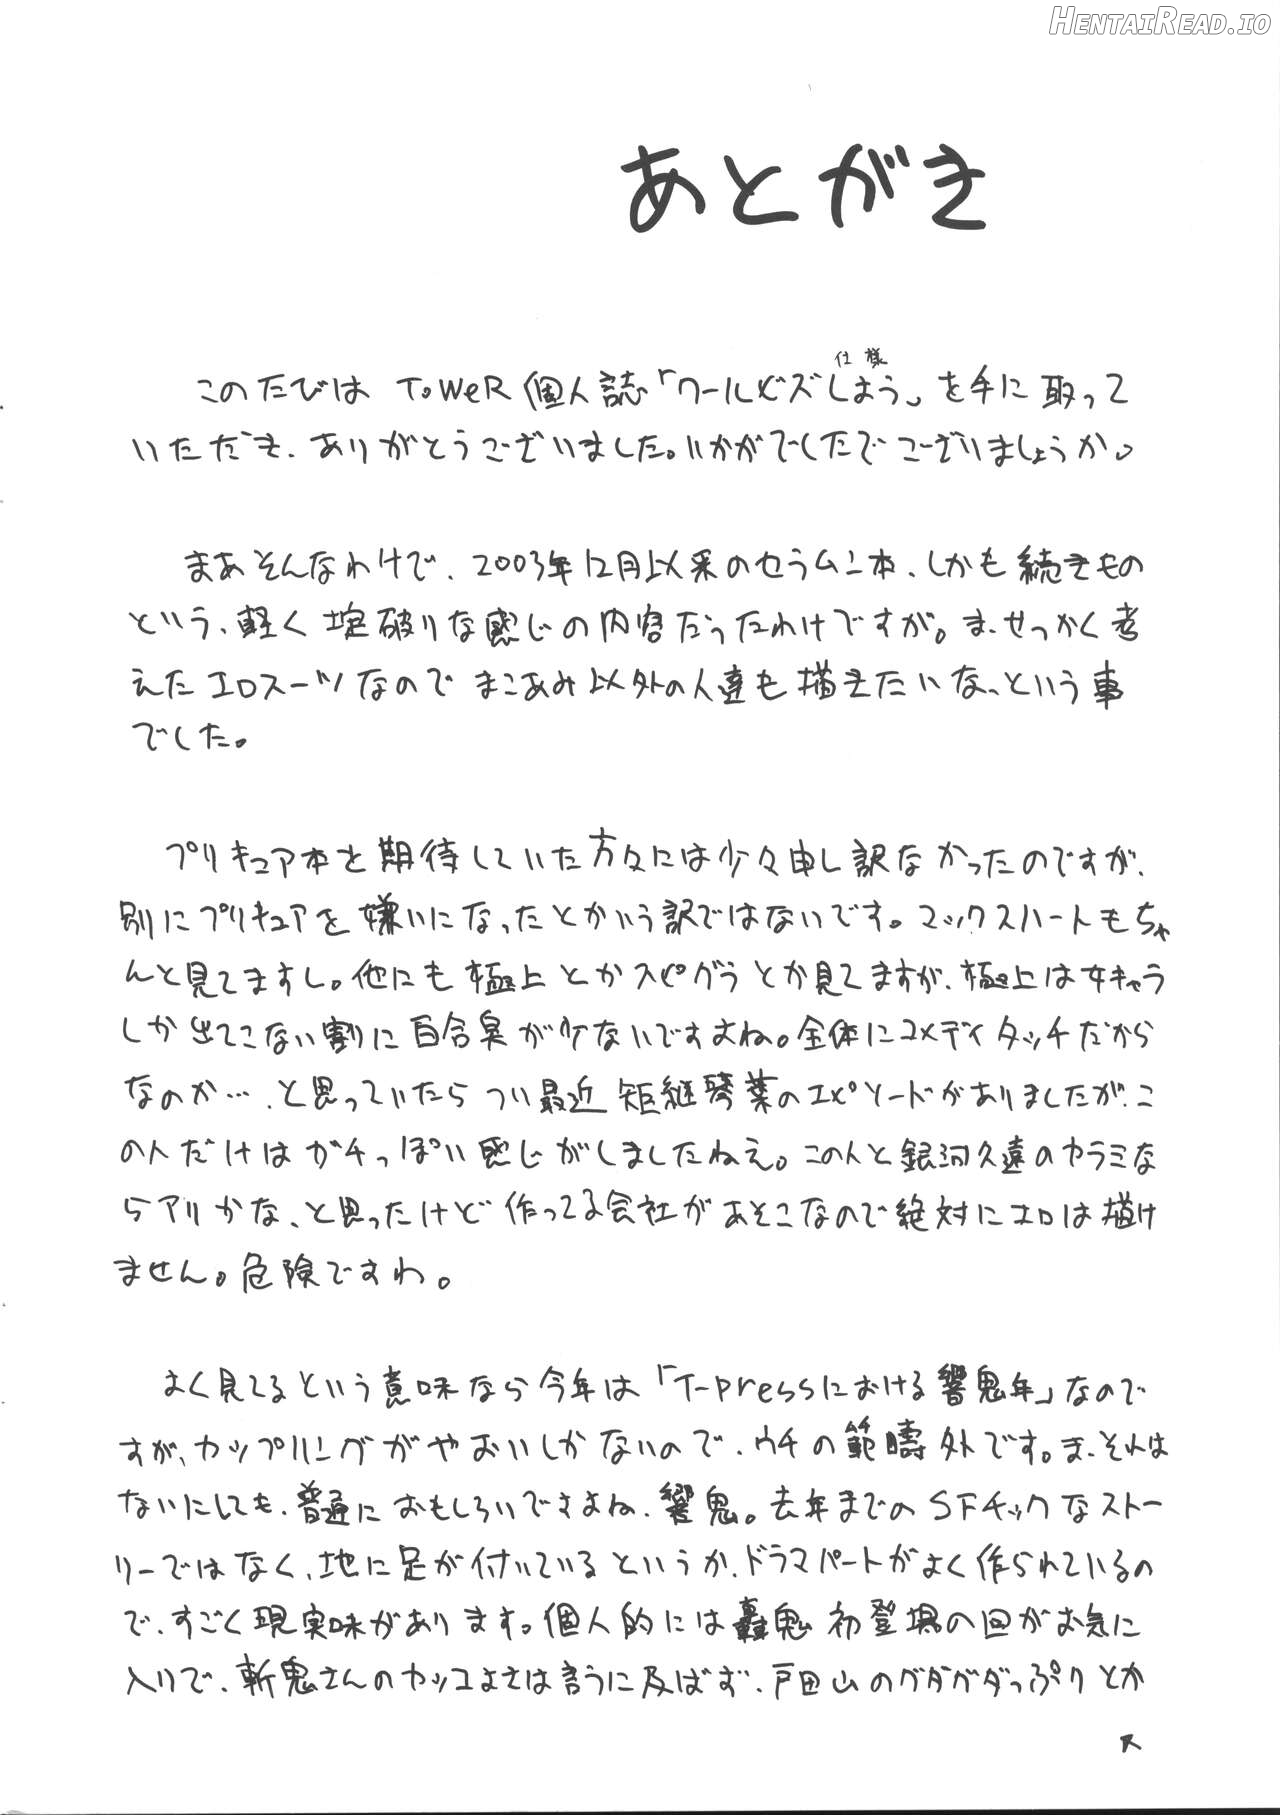 HENTAIREAD.IO
あとがき
仕様
このたびは ToWeR個人誌「ワールドズしよう」を手に取って
いただき、ありがとうございました。いかがでしたでございましょうか。
まあそんなわけで、2003年12月以来のセラムン本、しかも続きもの
という、軽く掟破りな感じの内容だったわけですが。ま、せっかく考
えたエロスーツなのでまこあみ以外の人達も描きたいなっという事
でした。
プリキュア本を期待していた方々には少々申し訳なかったのですが、
別にプリキュアを嫌いになったとかいう訳ではないです。マックスハートもちゃ
んと見てますし。他にも極上とかスピグラとか見てますが、極上は女キャラ
しか出てこない割に百合臭が少ないですよね。全体にコメディタッチだから
なのか…、と思っていたらつい最近矩継琴葉のエピソードがありましたが、こ
の人だけはガチっぽい感じがしましたねえ。この人と銀河久遠のカラミな
らアリかな、と思ったけど作ってる会社があそこなので絶対にエロは描け
ません。危険ですわ。
よく見てるという意味なら今年は「T-pressにおける響鬼年」なので
すが、カップリングがやおいしかないので、ウチの範疇外です。ま、それは
ないにしても、普通におもしろいですよね、響鬼。去年までのSFチックなストー
リーではなく、地に足が付いているというか、ドラマパートがよく作られているの
で、すごく現実味があります。個人的には轟鬼初登場の回がお気に
入りで、斬鬼さんのカッコよさは言うに及ばず、戸田山のグダグダっぷりとか